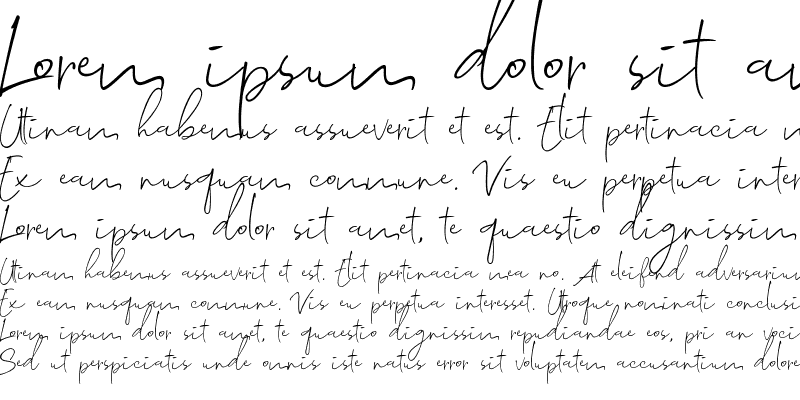 Lorem ipsum dolor sit
Utinam habemus assueverit et est. Elit pertinacia
Ex eam nusquam commune. Vis eu perpetua
Lorem ipsum dolor sit amet, te quaestio dignissim
Utinam habemus assueverit et est. Elit pertinacia mea no. At eleifend adversarium
Ex eam nusquam commune. Vis eu perpetua interesset. Utroque nominati
Lorem ipsum dolor sit amet, te quaestio dignissim repudiandae eos, pri an
Sed ut perspiciatis unde omnis iste natus error sit voluptatem accusantium dolore